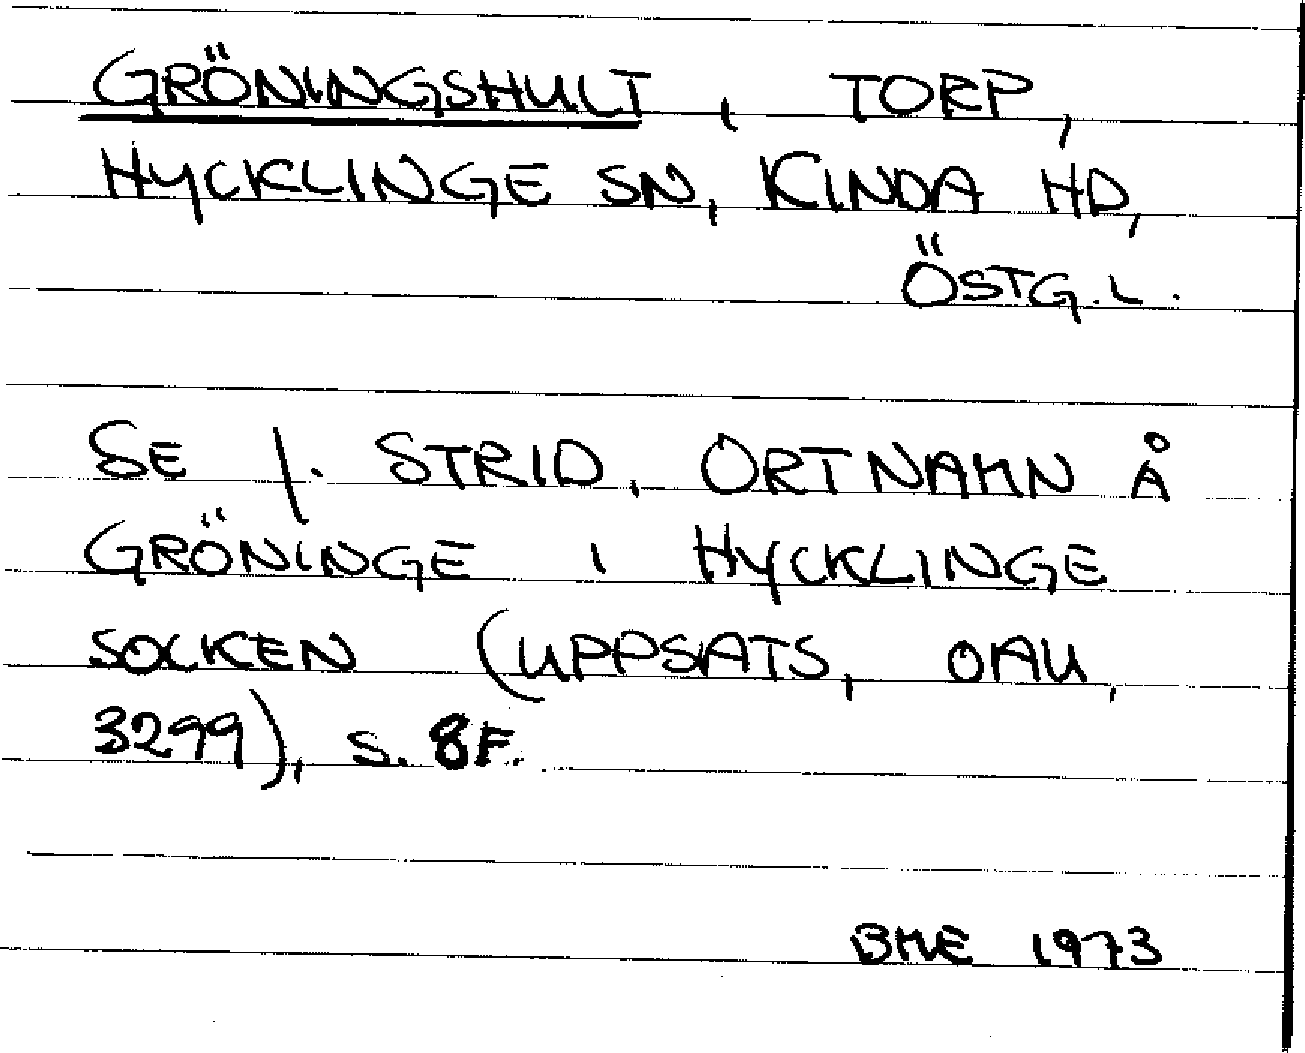 GRÖNINGSHULT, TORP,
HYCKLINGE SN, KINDA HD,
ÖSTG. L.
SE J. STRID, ORTNAMN Å
GRÖNINGE I HYCKLINGE
SOCKEN (UPPSATS, OAU,
3299), S. 8F.
BME 1973